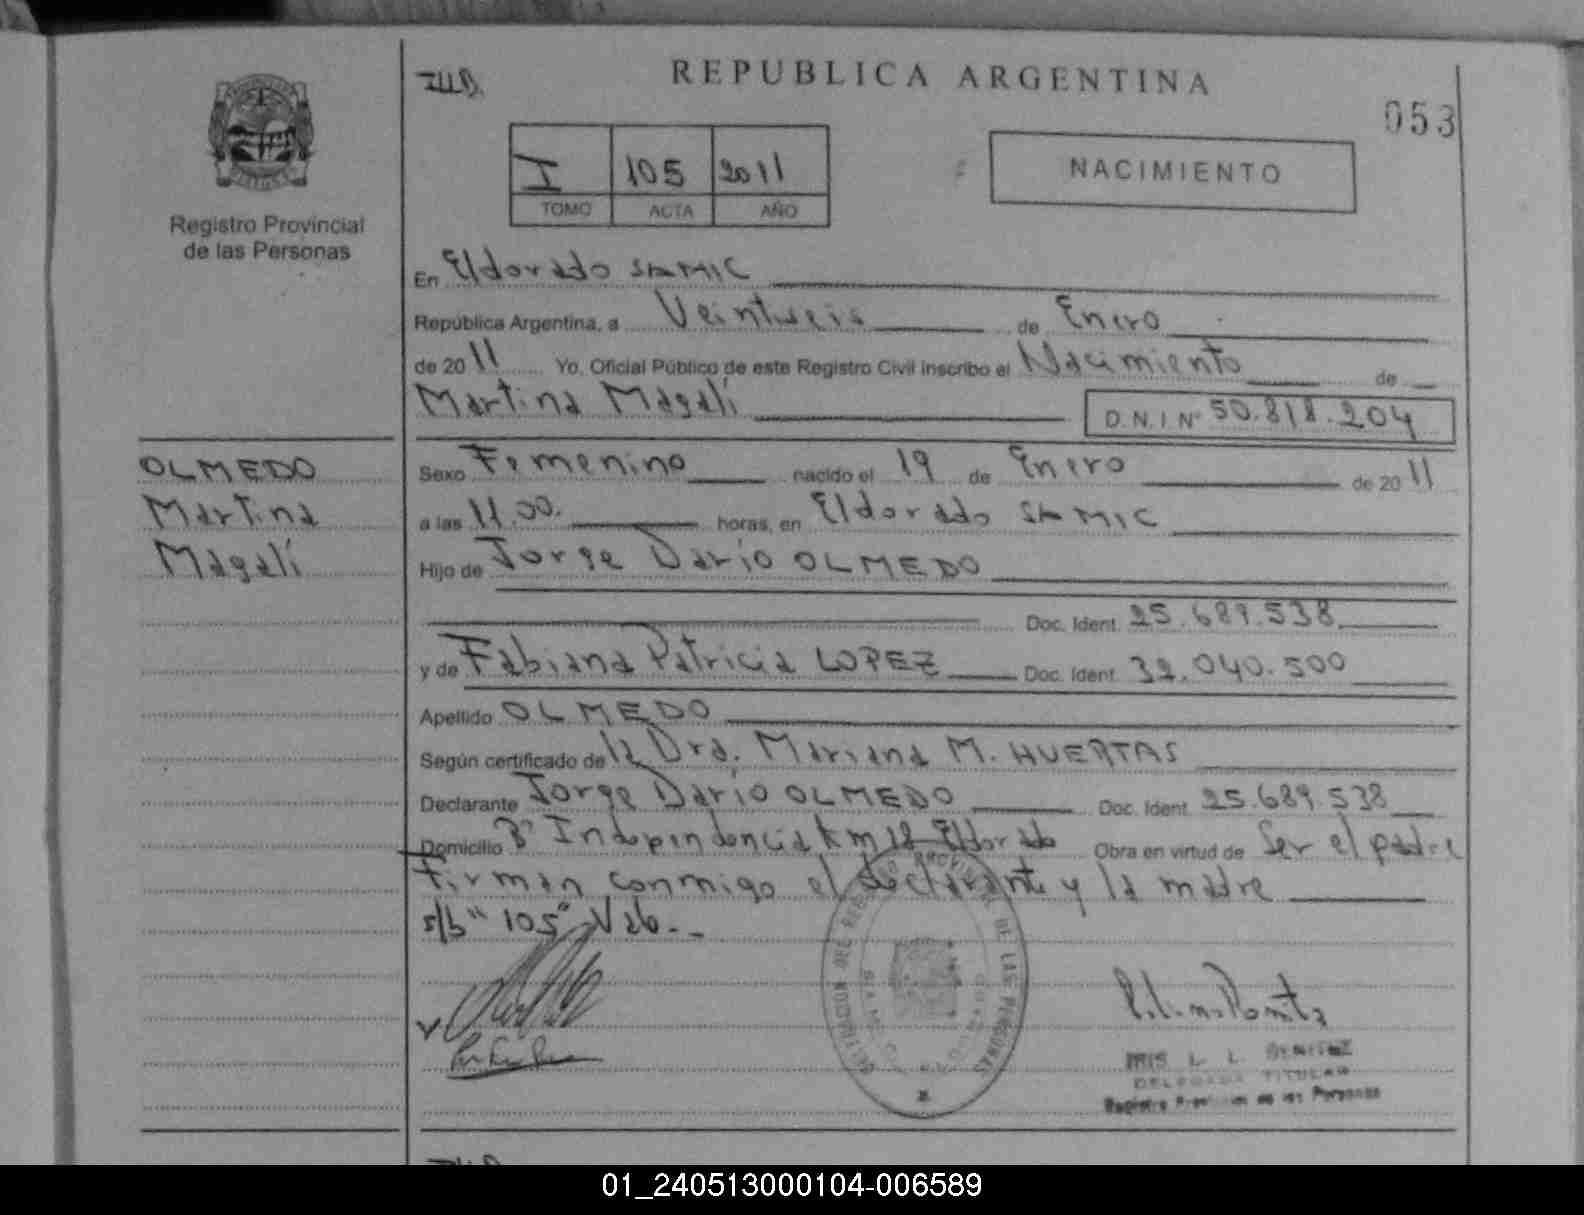 REPUBLICA ARGENTINA
053
I 105 2011
TOMO ACTA AÑO
NACIMIENTO
Registro Provincial
de las Personas
En Eldorado SAMIC
República Argentina, a Veintiseis de Enero
de 2011 Yo, Oficial Público de este Registro Civil inscribo el Nacimiento de
Martina Magalí D.N.I Nº 50.818.204
OLMEDO
Martina
Magalí
Sexo Femenino nacido el 19 de Enero de 2011
a las 11.00. horas, en Eldorado SAMIC
Hijo de Jorge Darío OLMEDO
Doc. Ident. 25.689.538
y de Fabiana Patricia LOPEZ Doc. Ident. 32.040.500
Apellido OLMEDO
Según certificado de la Dra. Mariana M. HUERTAS
Declarante Jorge Darío OLMEDO Doc. Ident. 25.689.538
Domicilio Bº Independencia Km 18 Eldorado Obra en virtud de Ser el padre
Firman conmigo el declarante y la madre
s/b "105" Vale.-
IRIS L. L. BENITEZ
DELEGADA TITULAR
Registro Provincial de las Personas
01_240513000104-006589